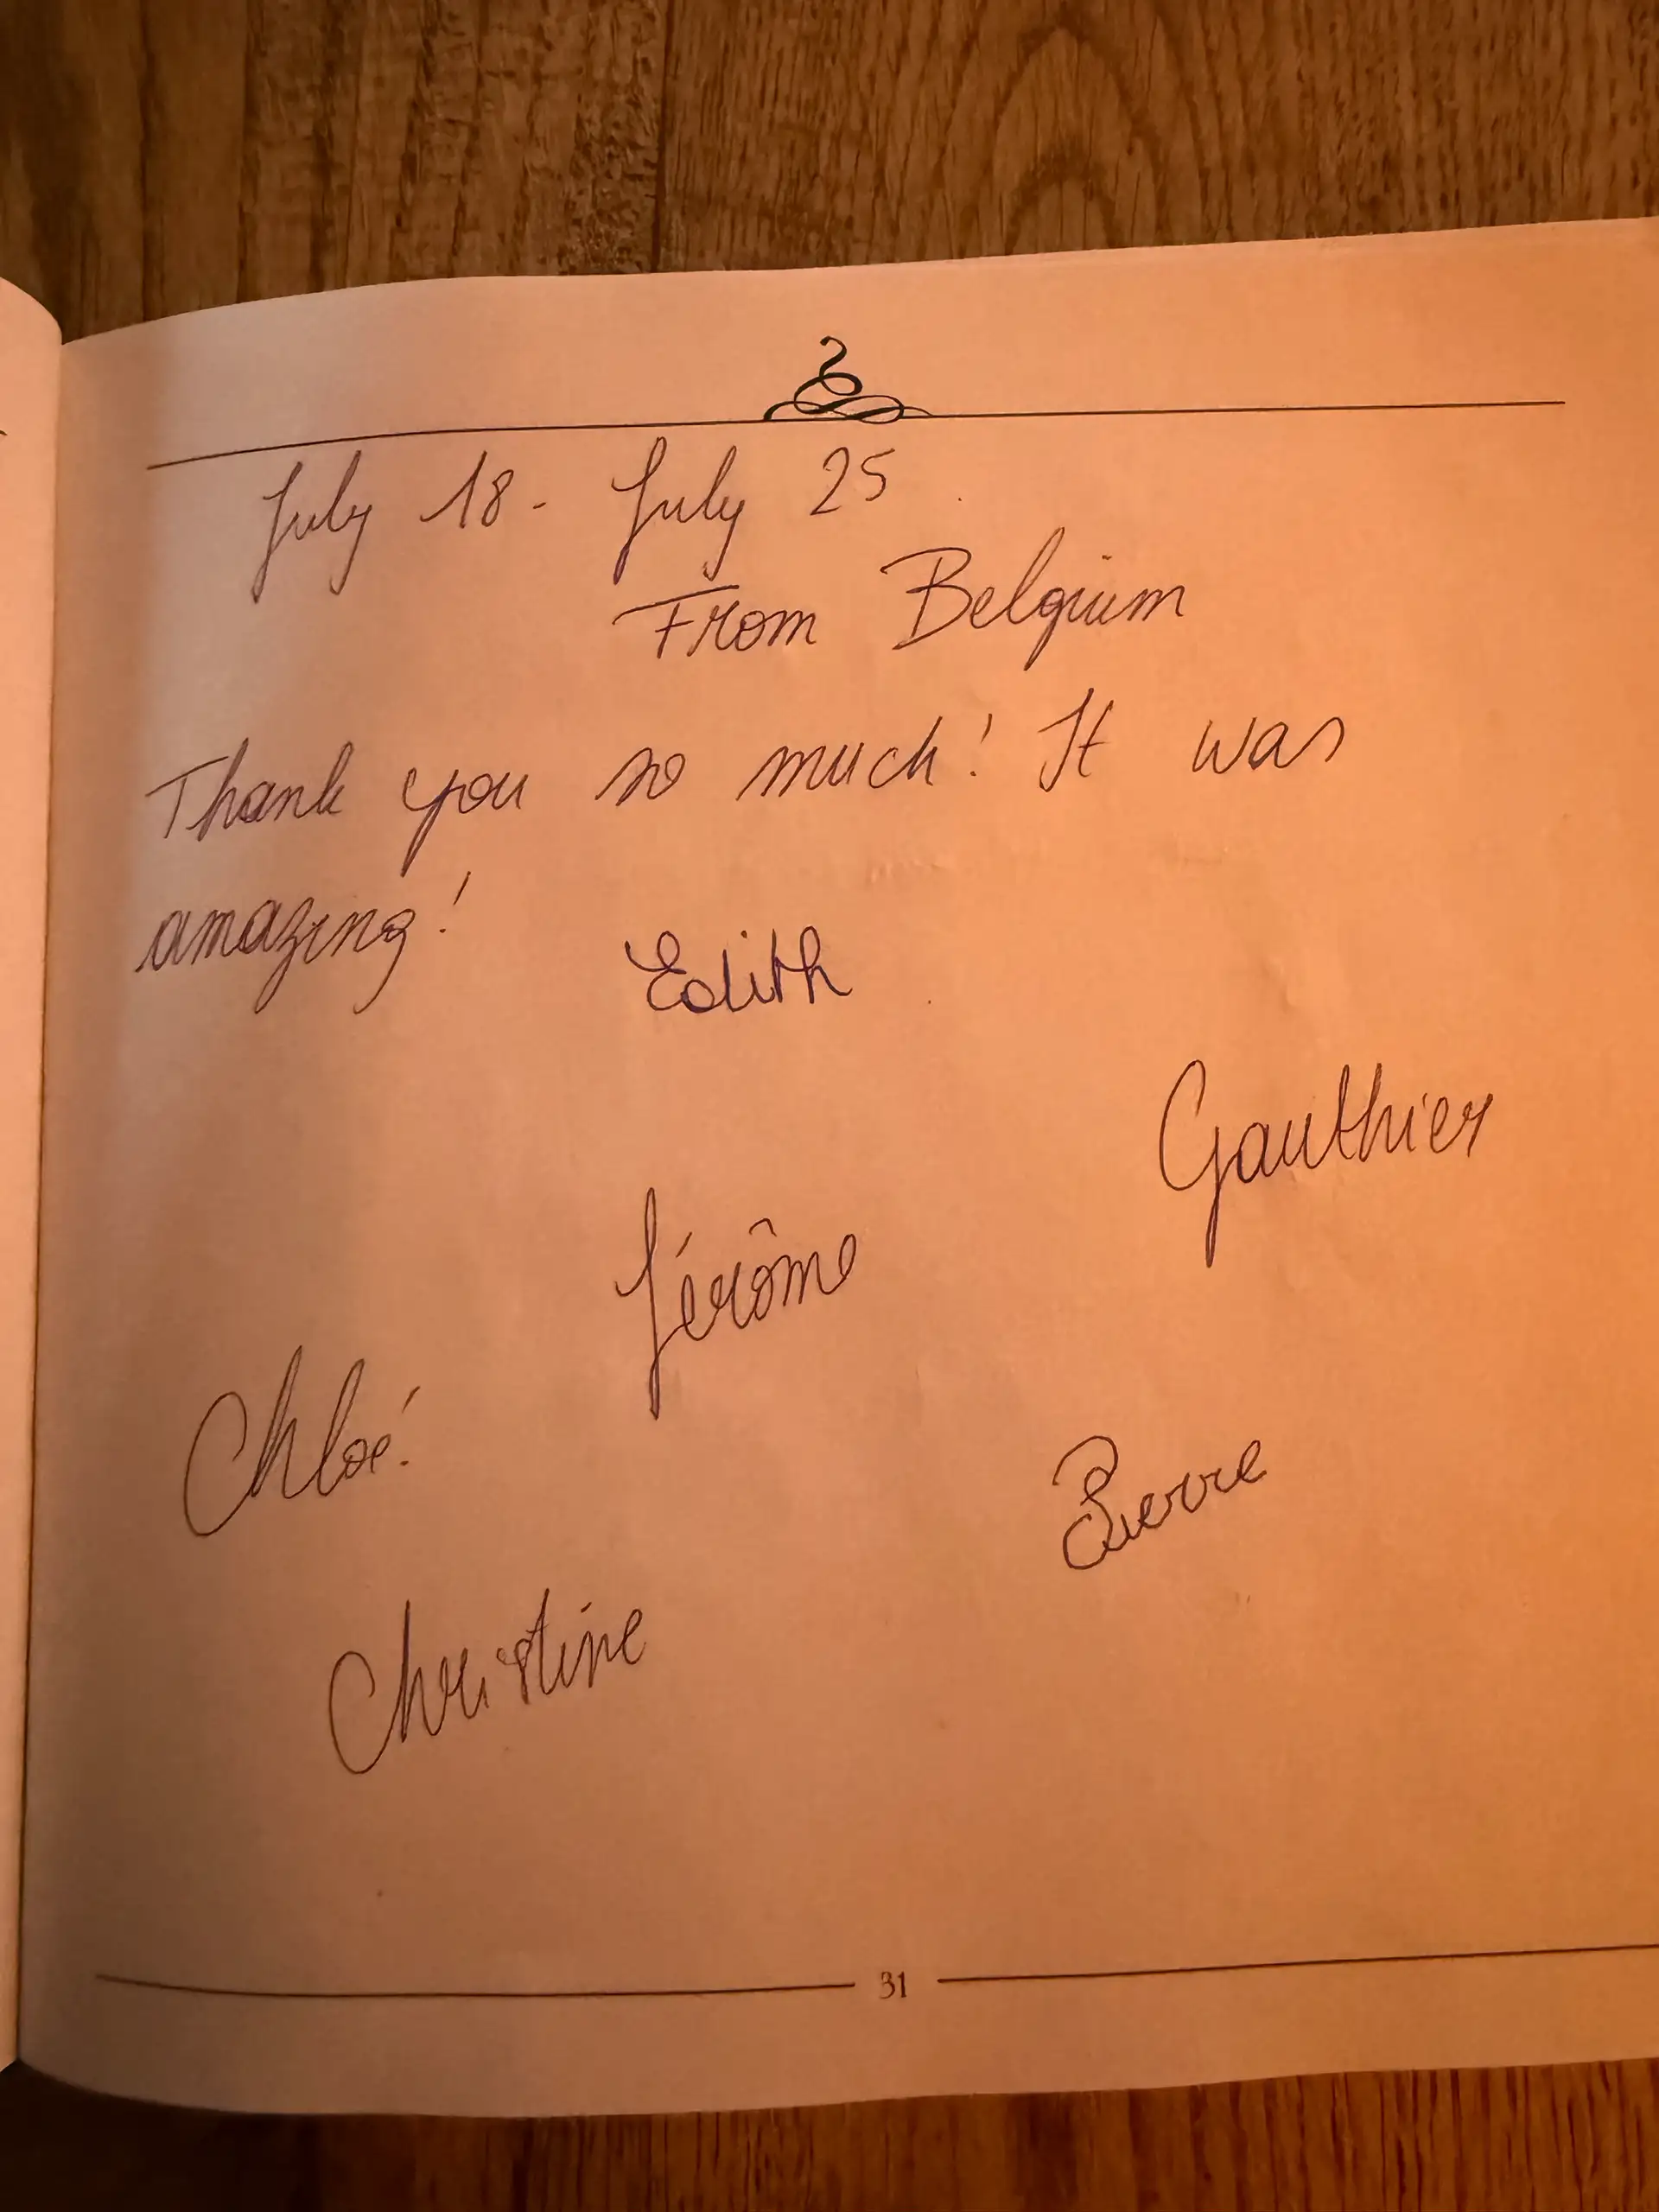 July 18 - July 25
From Belgium
Thank you so much! It was
amazing!
Edith
Gauthier
Jérôme
Chloé.
Pierre
Christine
31